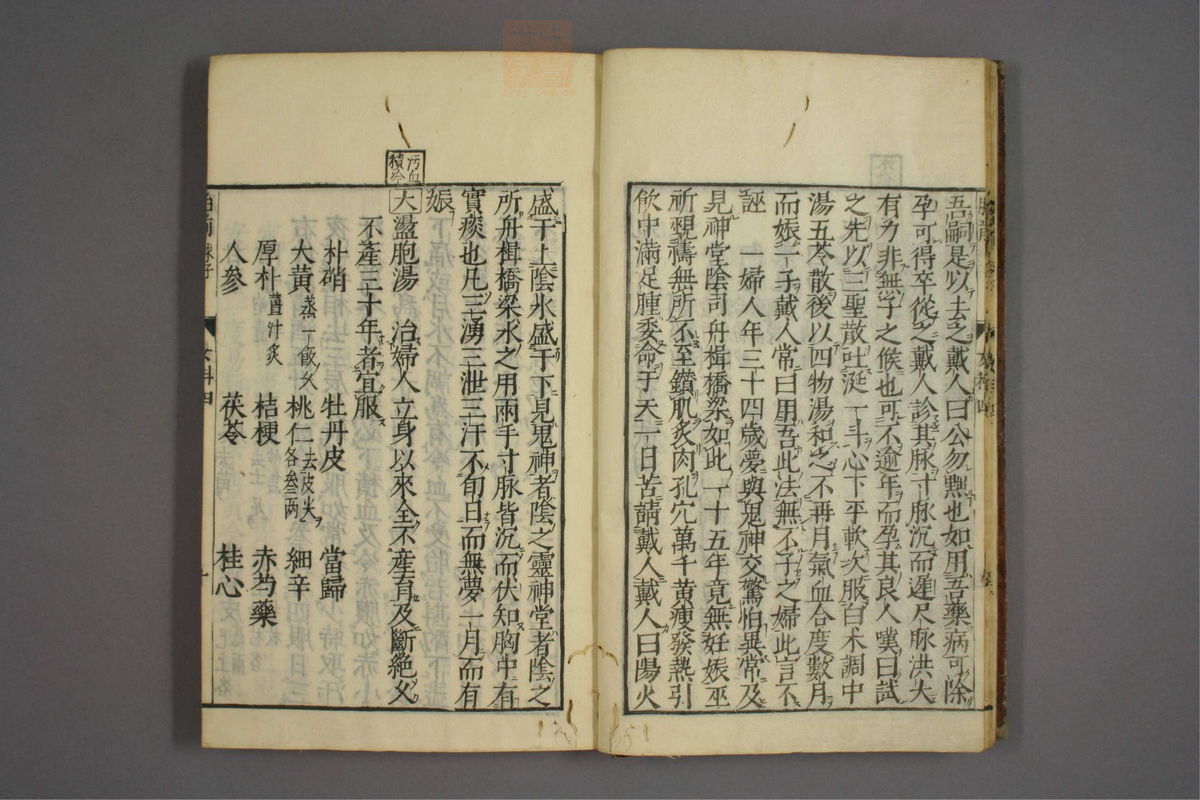 吾嗣是以去之戴人曰公勿黙也如用吾藥病可除
孕可得卒從之戴人診其脉寸脉沉而遲尺脉洪大
有力非無子之候也可不逾年而孕其良人嘆曰試
之先以三聖散吐涎一斗心下平軟次服白朮調中
湯五苓散後以四物湯和之不再月氣血合度數月
而娠一子戴人常曰用吾此法無不子之婦此言不
誣　一婦人年三十四歲夢與鬼神交驚怕異常及
見神堂陰司舟楫橋梁如此一十五年竟無妊娠巫
祈覡禱無所不至鑚肌炙肉孔穴萬千黄瘦發熱引
飲中滿足腫委命于天一日苦請戴人戴人曰陽火
盛于上陰水盛于下見鬼神者陰之靈神堂者陰之
所舟楫橋梁水之用兩手寸脉皆沉而伏知胸中有
實痰也凡三湧三泄三汗不旬日而無夢一月而有
娠
汚血積冷
大盪胞湯　治婦人立身以來全不產育及斷絶久
不產三十年者宜服
朴硝　牡丹皮　當歸
大黄蒸一飯久　桃仁去皮尖各叁兩　細辛
厚朴薑汁炙　桔梗　赤芍藥
人參　茯苓　桂心
女科四